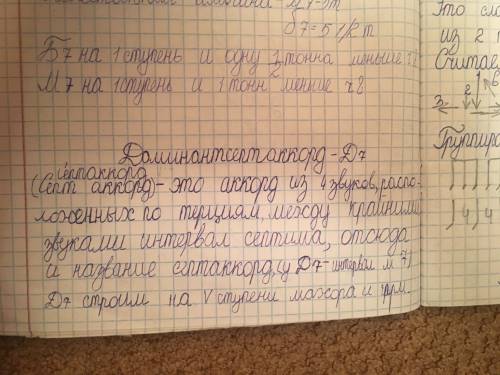 δ7=5 1/2 т
Б7 на 1 ступень и одну 1/2 тонна меньше
М7 на 1 ступень и 1 тонн менше ч8
Доминантсептаккорд - D7
септаккорд
(Септ аккорд) - это аккорд из 4 звуков, распо-
ложенных по терциям, между крайними
звуками интервал септима, отсюда
и название септаккорд, (у D7 - интервал м7)
D7 строим на V ступени мажора и гарм.
Это
из 2
Считае
2
3.
Группиро
4 4